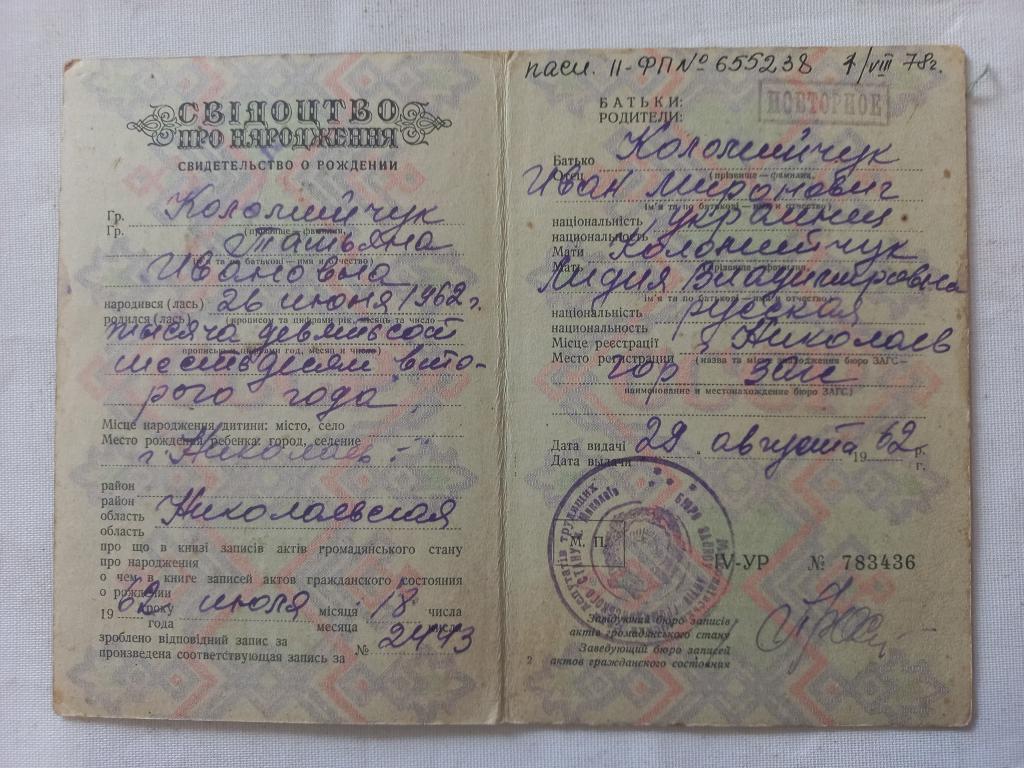 СВІДОЦТВО
ПРО НАРОДЖЕННЯ
СВИДЕТЕЛЬСТВО О РОЖДЕНИИ
Гр. Коломийчук
Гр. (прізвище — фамилия,
Татьяна
ім'я та по батькові — имя и отчество)
Ивановна
народився (лась) 26 июня 1962 г.
родился (лась) (прописом та цифрами рік, місяць та число
тысяча девятьсот
прописью и цифрами год, месяц и число)
шестьдесят вто-
рого года
Місце народження дитини: місто, село
Место рождения ребенка: город, селение
г. Николаев
район
район
область Николаевская
область
про що в книзі записів актів громадянського стану
про народження
о чем в книге записей актов гражданского состояния
о рождении
19 62 року июля місяця 18 числа
года месяца числа
зроблено відповідний запис за
произведена соответствующая запись за № 2443
пасп. II-ФП № 655238 1/VIII 78г.
ПОВТОРНОЕ
БАТЬКИ:
РОДИТЕЛИ:
Батько Коломийчук
Отец (прізвище — фамилия,
Иван Миронович
ім'я та по батькові — имя и отчество)
національність украинец
национальность
Мати Коломийчук
Мать (прізвище — фамилия,
Лидия Владимировна
ім'я та по батькові — имя и отчество)
національність русская
национальность
Місце реєстрації г Николаев
Место регистрации (назва та місце знаходження бюро ЗАГС —
гор загс
наименование и местонахождение бюро ЗАГС)
Дата видачі 29 августа 19 62 р.
Дата выдачи г.
М. П.
IV-УР № 783436
Завідуючий бюро записів
актів громадянського стану
Заведующий бюро записей
актов гражданского состояния
2